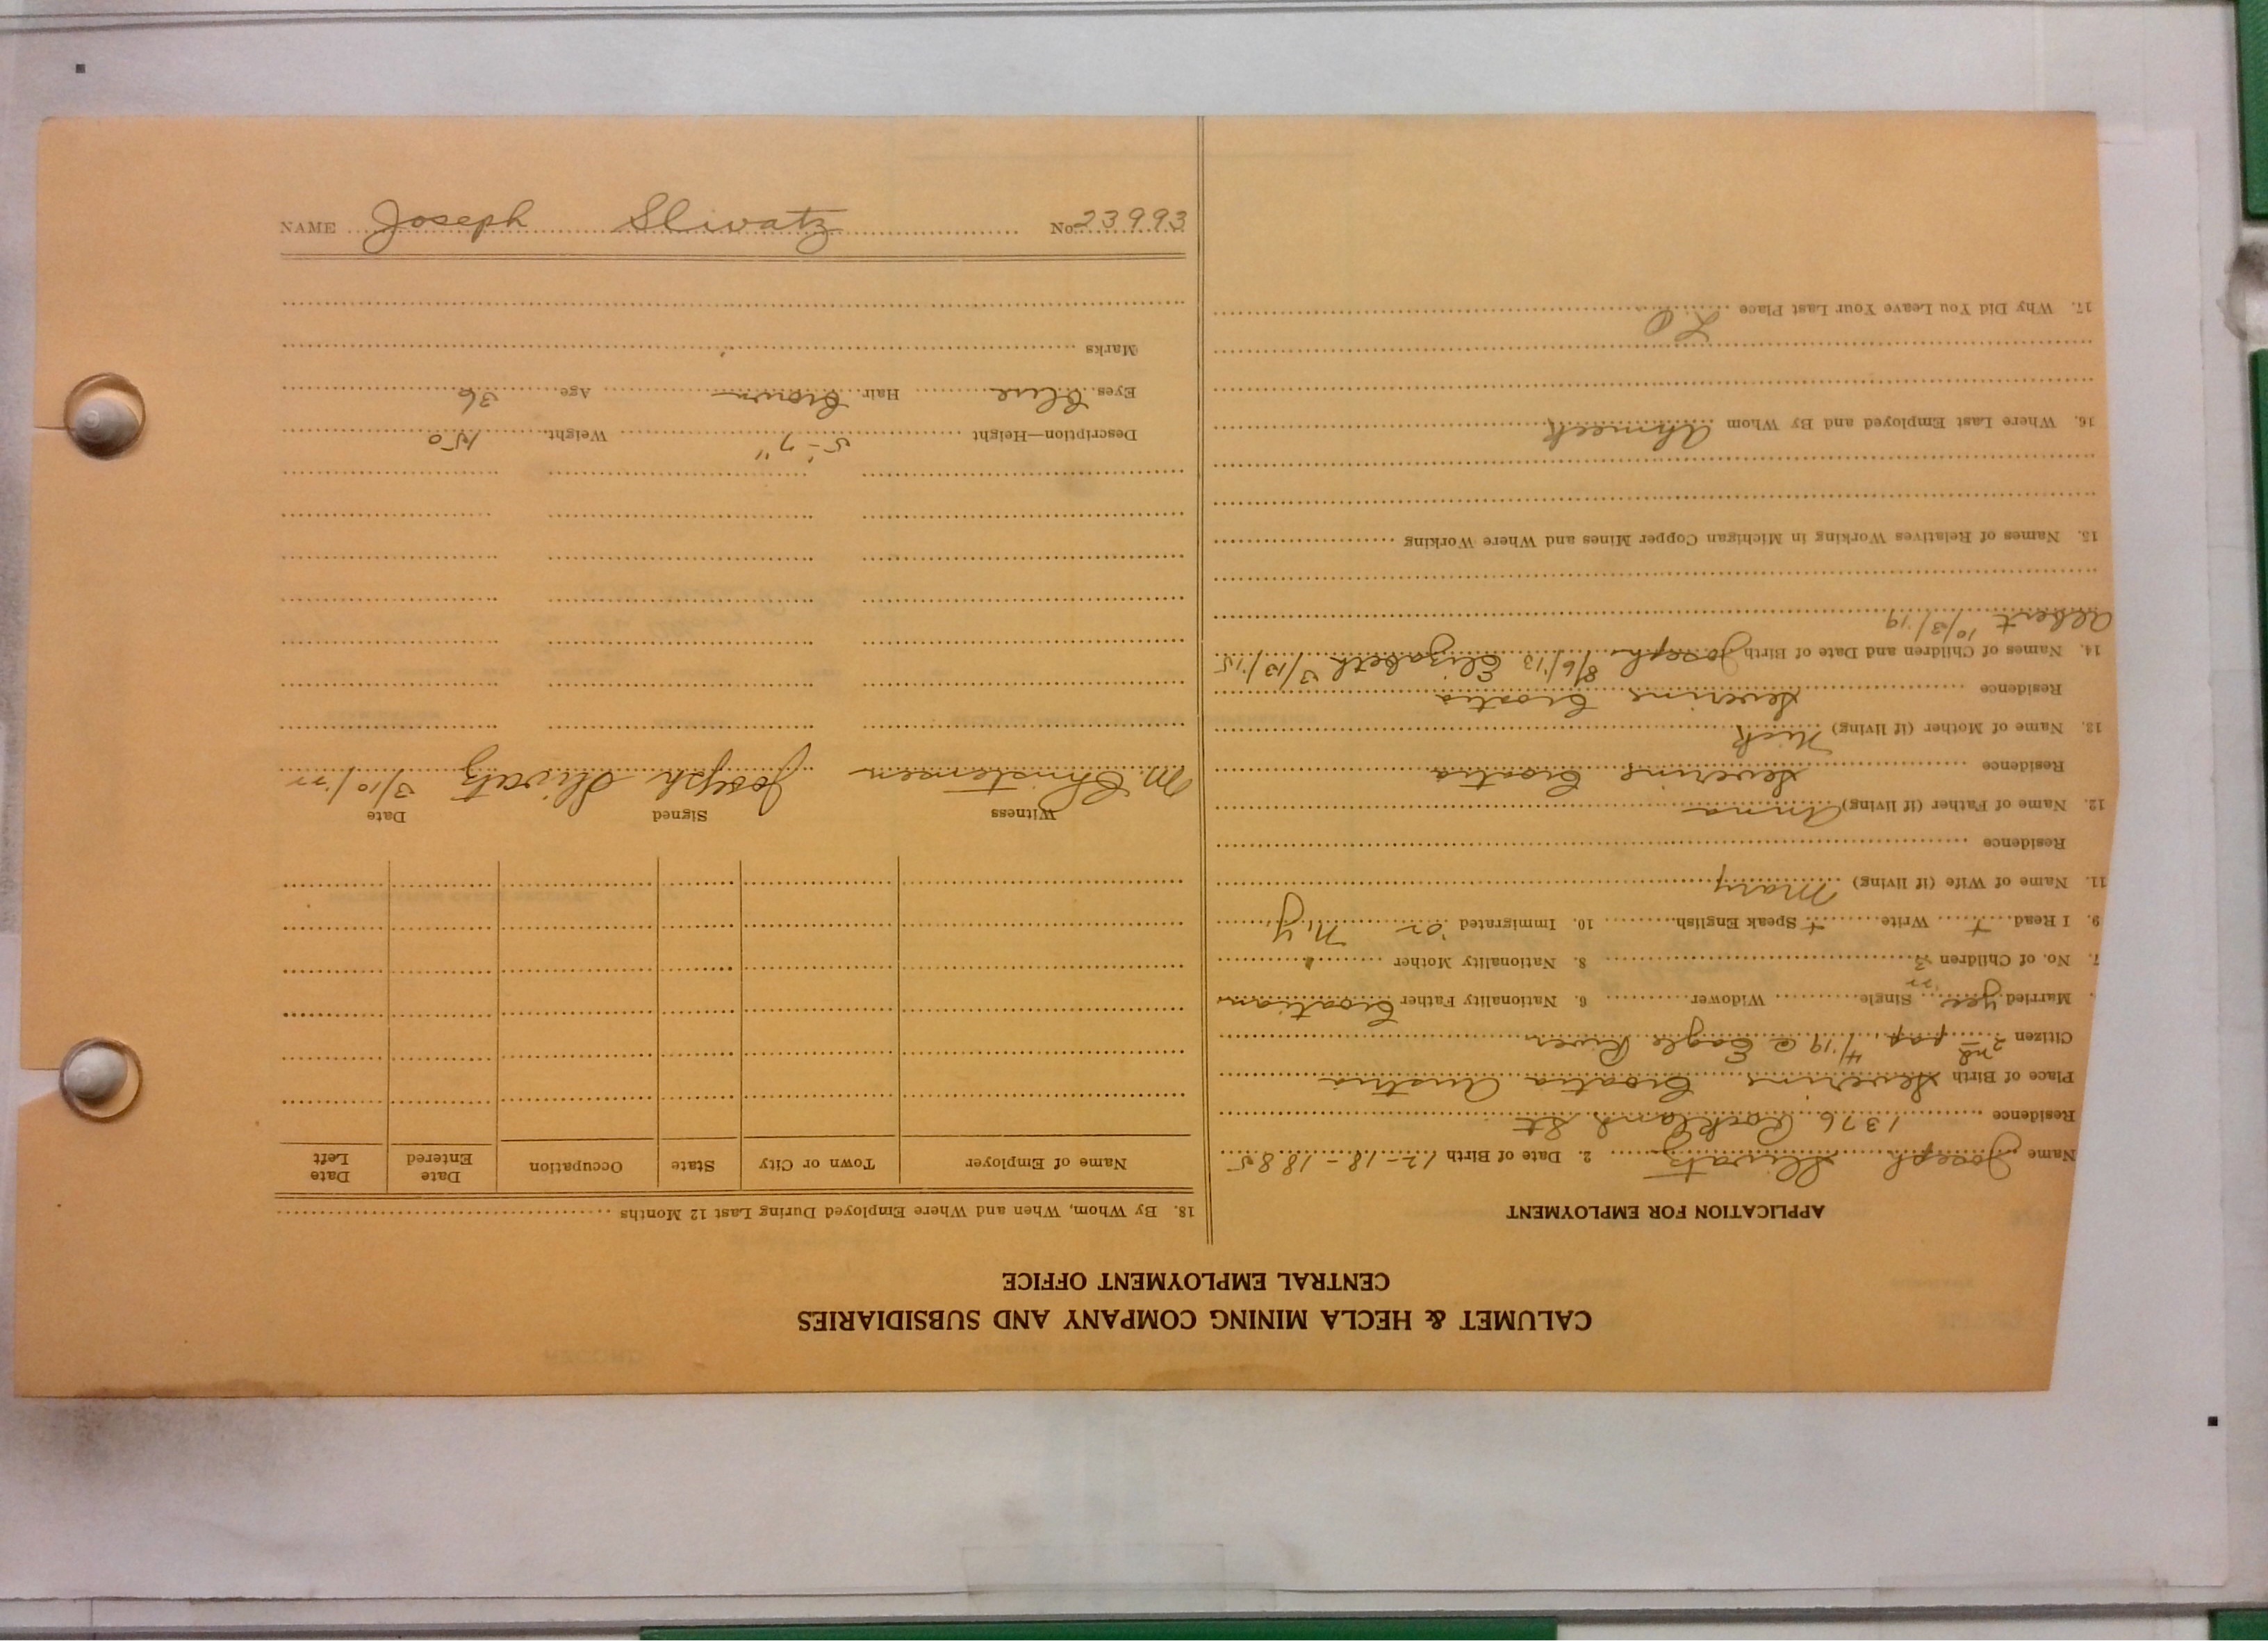 NAME Joseph Slivatz No. 23993
CALUMET & HECLA MINING COMPANY AND SUBSIDIARIES
CENTRAL EMPLOYMENT OFFICE
APPLICATION FOR EMPLOYMENT
Name Joseph Slivatz 2. Date of Birth 12-18-1885
Residence 1376 Rockland St
Place of Birth Severins Croatia Austria
Citizen 2nd pap. 4/'19 @ Eagle River
Married yes Single Widower 6. Nationality Father Croatian
7. No. of Children 3 8. Nationality Mother "
9. I Read + Write + Speak English 10. Immigrated N.Y.
11. Name of Wife (if living) Mary
Residence
12. Name of Father (if living) Anna
Residence Severins Croatia
13. Name of Mother (if living) Nick
Residence Severins Croatia
14. Names of Children and Date of Birth Joseph 8/6/13 Elizabeth 3/13/15
Albert 10/3/19
15. Names of Relatives Working in Michigan Copper Mines and Where Working
16. Where Last Employed and By Whom Ahmeek
17. Why Did You Leave Your Last Place
18. By Whom, When and Where Employed During Last 12 Months
Name of Employer Town or City State Occupation Date Entered Date Left
Witness Signed Date
M. Christensen Joseph Slivatz 3/10/22
Description—Height 5'-7" Weight 150
Eyes blue Hair brown Age 36
Marks